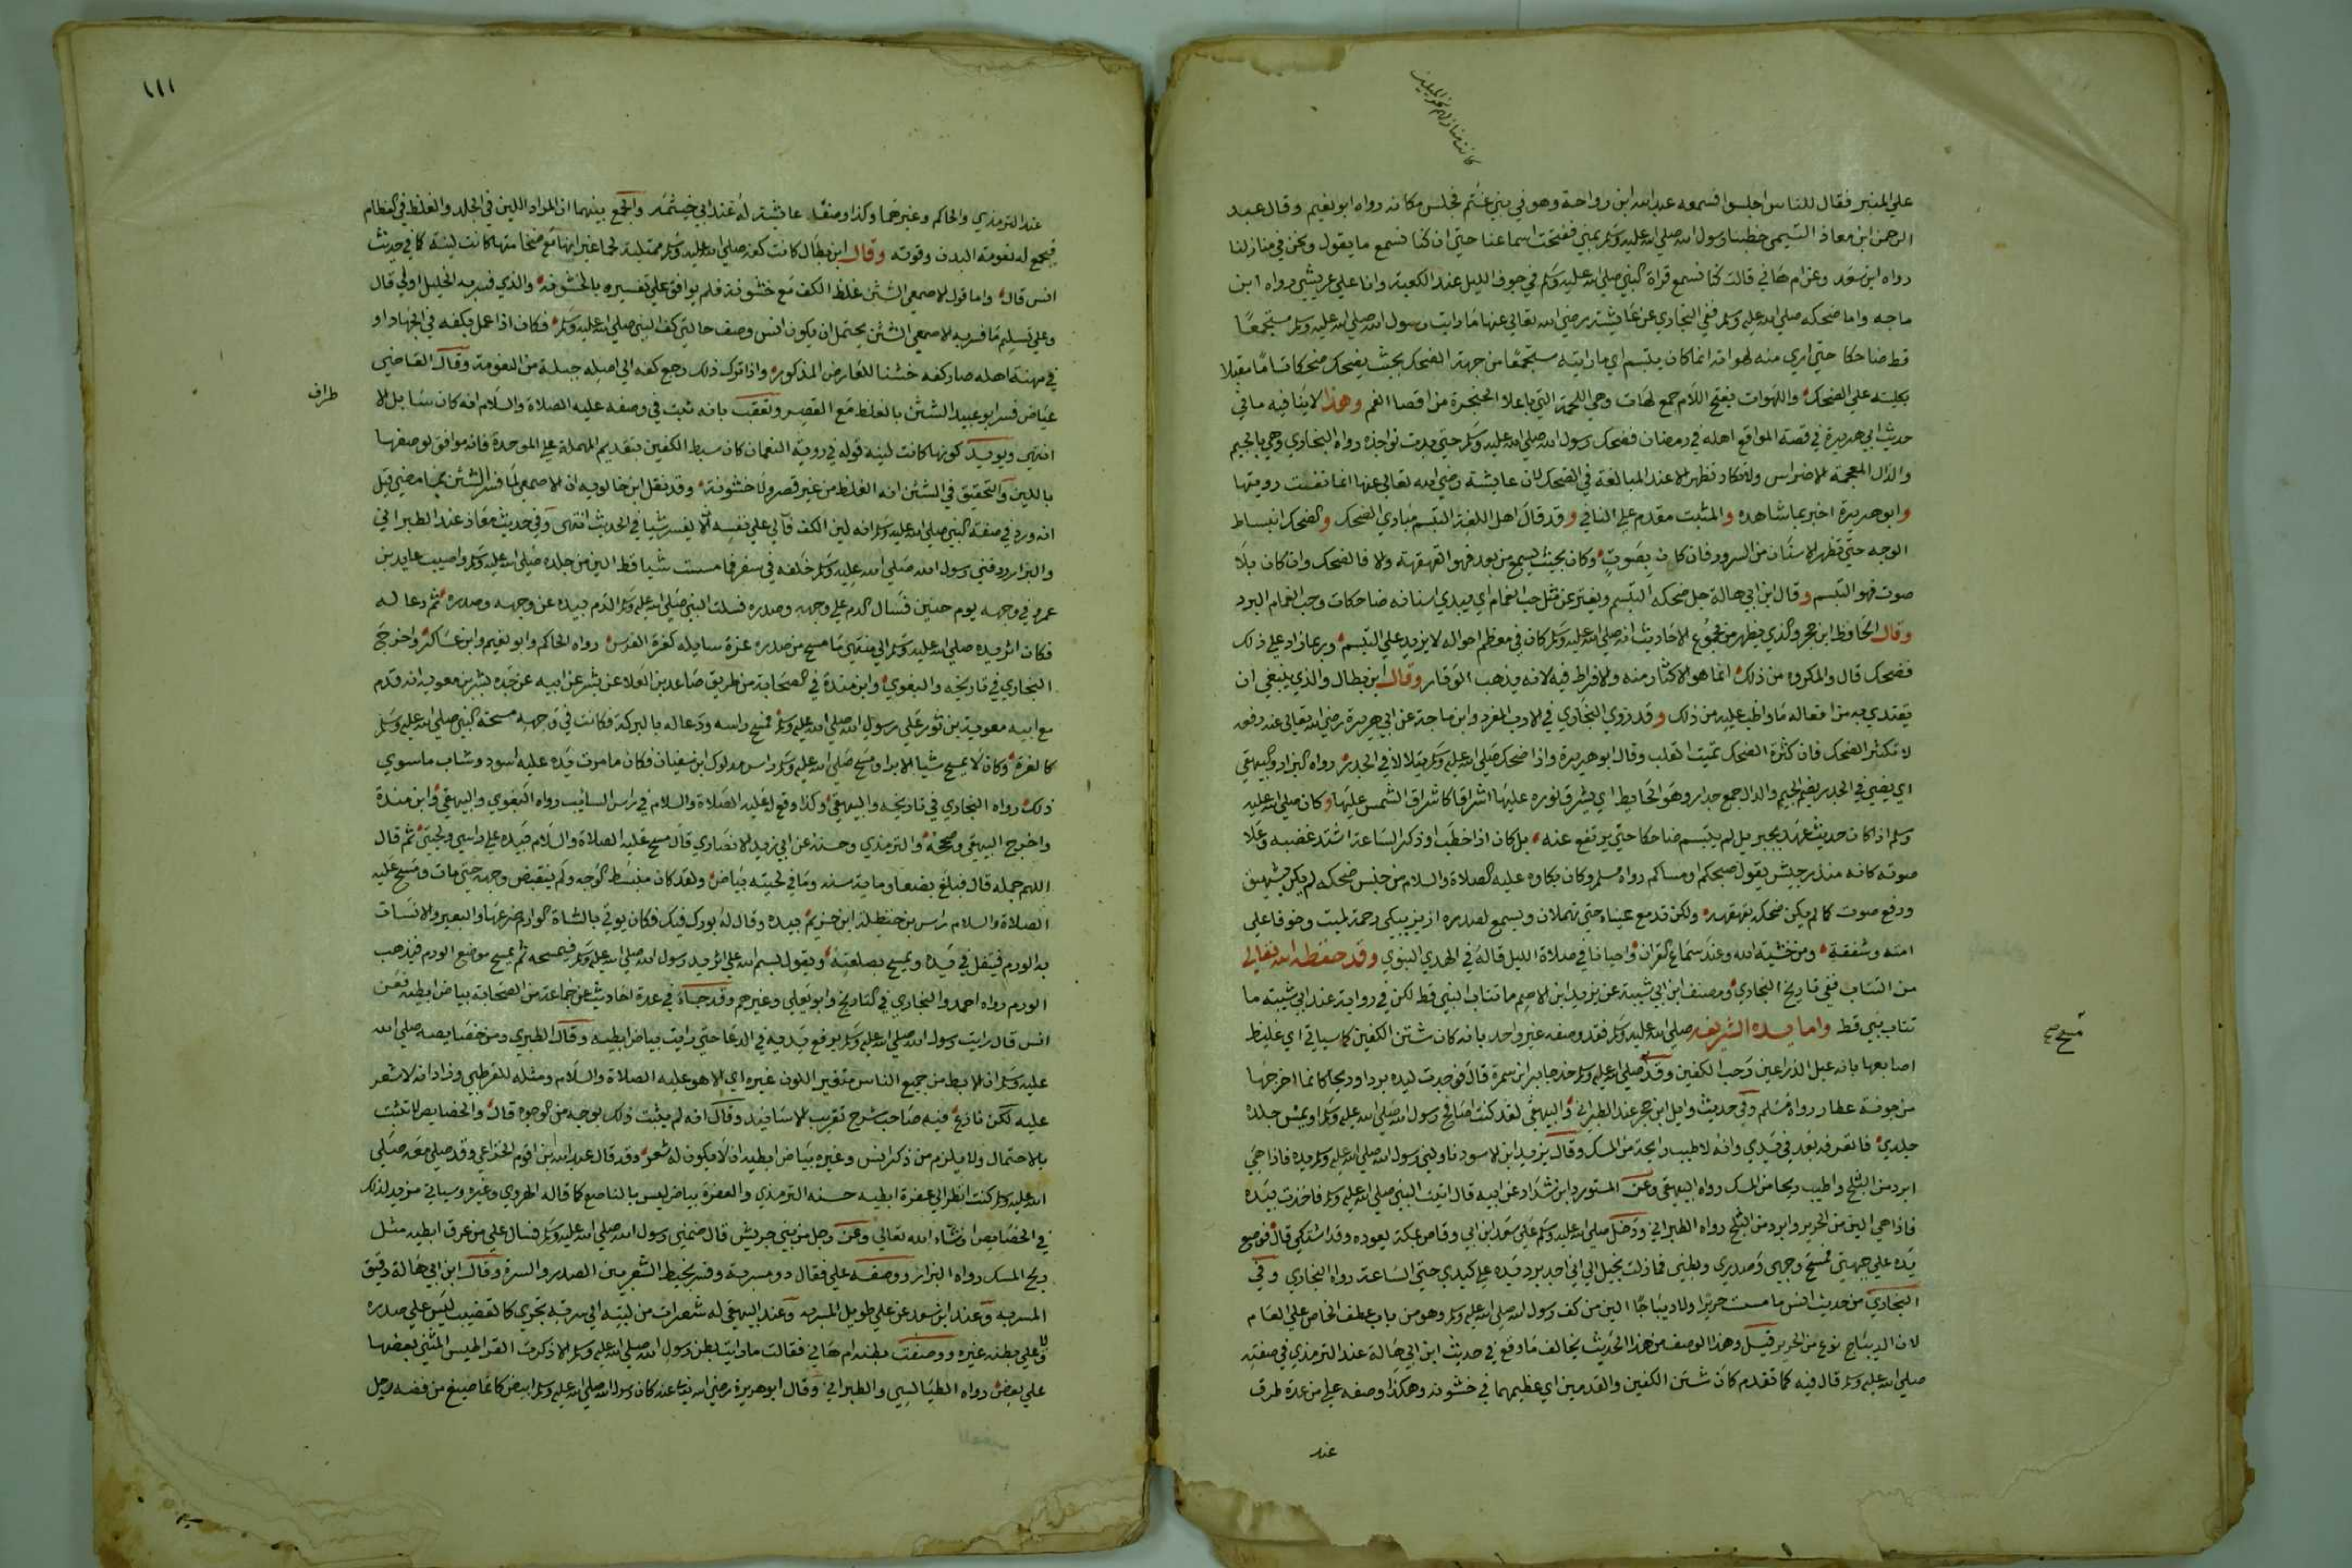 كانت منازلهم نحو الميلين
علي المنبر فقال للناس اجلسوا فسمعه عبد الله ابن رواحة وهو في بني غنم فجلس مكانه رواه ابو نعيم وقال عبد
الرحمن ابن معاذ التيمي خطبنا رسول الله صلي الله عليه وسلم بمني ففتحت اسماعنا حتي ان كنا نسمع ما يقول ونحن في منازلنا
رواه ابن سعد وعن ام هاني قالت كنا نسمع قراة النبي صلي الله عليه وسلم في جوف الليل عند الكعبة وانا علي عريشي رواه ابن
ماجه واما ضحكه صلي الله عليه وسلم ففي البخاري عن عايشة رضي الله تعالي عنها ما رايت رسول الله صلي الله عليه وسلم مستجمعا
قط ضاحكا حتي اري منه لهواته انما كان يتبسم اي ما رايته مستجمعا من جهة الضحك بحيث يضحك ضحكا تاما مقبلا
بكليته علي الضحك واللهوات بفتح اللام جمع لهات وهي اللحمة التي باعلا الحنجرة من اقصا الفم وهذا لا ينافيه ما في
حديث ابي هريرة في قصة المواقع اهله في رمضان فضحك رسول الله صلي الله عليه وسلم حتي بدت نواجذه رواه البخاري وهي بالجيم
والذال المعجمة الاضراس ولا تكاد تظهر الا عند المبالغة في الضحك لان عايشة رضي الله تعالي عنها انما نفت رويتها
وابو هريرة اخبر بما شاهده والمثبت مقدم علي النافي وقد قال اهل اللغة التبسم مبادي الضحك والضحك انبساط
الوجه حتي تظهر الاسنان من السرور فان كان بصوت وكان بحيث يسمع من بعد فهو القهقهة والا فالضحك وان كان بلا
صوت فهو التبسم وقال ابن ابي هالة جل ضحكه التبسم ويفتر عن مثل حب الغمام اي يبدي اسنانه ضاحكات وحب الغمام البرد
وقال الحافظ ابن حجر والذي يظهر من مجموع الاحاديث انه صلي الله عليه وسلم كان في معظم احواله لا يزيد علي التبسم وربما زاد علي ذلك
فضحك قال والمكروه من ذلك انما هو الاكثار منه والافراط فيه لانه يذهب الوقار وقال ابن بطال والذي ينبغي ان
يقتدي به من افعاله ما واظب عليه من ذلك وقد روي البخاري في الادب المفرد وابن ماجة عن ابي هريرة رضي الله تعالي عنه رفعه
لا تكثر الضحك فان كثرة الضحك تميت القلب وقال ابو هريرة واذا ضحك صلي الله عليه وسلم يتلالا في الجدر رواه البزار والبيهقي
اي يضي في الجدر بضم الجيم والدال جمع جدار وهو الحايط اي يشرق نوره عليها اشراقا كاشراق الشمس عليها وكان صلي الله عليه
وسلم اذا كان حديث عهد بجبريل لم يتبسم ضاحكا حتي يرتفع عنه بل كان اذا خطب او ذكر الساعة اشتد غضبه وعلا
صوته كانه منذر جيش يقول صبحكم او مساكم رواه مسلم وكان بكاوه عليه الصلاة والسلام من جنس ضحكه لم يكن بشهيق
ورفع صوت كما لم يكن ضحكه بقهقهه ولكن تدمع عيناه حتي تهملان ويسمع لصدره ازيز يبكي رحمة لميت وخوفا علي
امته وشفقة ومن خشية الله وعند سماع القران واحيانا في صلاة الليل قاله في الهدي النبوي وقد حفظه الله تعالي
من التثاب ففي تاريخ البخاري ومصنف ابن ابي شيبة عن يزيد ابن الاصم ما تثاب النبي قط لكن في رواية عند ابي شيبة ما
تثاب نبي قط واما يده الشريفه صلي الله عليه وسلم فقد وصفه غير واحد بانه كان شثن الكفين كما سياتي اي غليظ
مسح صح
اصابعها بانه عبل الذراعين رحب الكفين وقد صلي الله عليه وسلم خد جابر ابن سمرة قال فوجدت ليده بردا وريحا كانما اخرجها
من جونة عطار رواه مسلم وفي حديث وايل ابن حجر عند الطبراني والبيهقي لقد كنت اصافح رسول الله صلي الله عليه وسلم او يمس جلده
جلدي فاتعرفه بعد في يدي وانه لاطيب رايحة من المسك وقال يزيد ابن الاسود ناولني رسول الله صلي الله عليه وسلم يده فاذا هي
ابرد من الثلج واطيب ريحا من المسك رواه البيهقي وعن المستورد ابن شداد عن ابيه قال اتيت النبي صلي الله عليه وسلم فاخذت بيده
فاذا هي الين من الحرير وابرد من الثلج رواه الطبراني ودخل صلي الله عليه وسلم علي سعد ابن ابي وقاص بمكة يعوده وقد اشتكي قال فوضع
يده علي جبهتي فمسح وجهي وصدري وبطني فما زلت يخيل الي اني اجد برد يده علي كبدي حتي الساعة رواه البخاري وفي
البخاري من حديث انس ما مست حريرا ولا ديباجا الين من كف رسول الله صلي الله عليه وسلم وهو من باب عطف الخاص علي العام
لان الديباج نوع من الحرير قيل وهذا الوصف من هذا الحديث يخالف ما وقع في حديث ابن ابي هالة عند الترمذي في صفته
صلي الله عليه وسلم قال فيه كما تقدم كان شثن الكفين والقدمين اي غليظهما في خشونة وهكذا وصفه علي من عدة طرق
عند
١١١
عند الترمذي والحاكم وغيرهما وكذا وصف عايشة له عند ابي خيثمة والجمع بينهما ان المراد اللين في الجلد والغلظ في العظام
فيجمع له نعومة البدن وقوته وقال ابن بطال كانت كفه صلي الله عليه وسلم ممتلية لحما غير انها مع ضخامتها كانت لينة كما في حديث
انس قال واما قول الاصمعي الشثن غلظ الكف مع خشونة فلم يوافق علي تفسيره بالخشونة والذي فسر به الخليل اولي قال
وعلي تسليم ما فسر به الاصمعي الشثن يحتمل ان يكون انس وصف حالتي كف النبي صلي الله عليه وسلم فكان اذا عمل بكفه في الجهاد او
في مهنة اهله صار كفه خشنا للعارض المذكور واذا ترك ذلك رجع كفه الي اصله جبلة من النعومة وقال القاضي
عياض فسر ابو عبيد الشثن بالغلظ مع القصر وتعقب بانه ثبت في وصفه عليه الصلاة والسلام انه كان سابل الا
طراف
انتهي ويويد كونها كانت لينة قوله في روية النعمان كان سبط الكفين بتقديم المهملة علي الموحدة فانه موافق لوصفها
باللين والتحقيق في الشثن انه الغلظ من غير قصر ولا خشونة وقد نقل ابن خالويه ان الاصمعي لما فسر الشثن بما مضي قيل
انه ورد في صفة النبي صلي الله عليه وسلم انه لين الكف فآلي علي نفسه ان لا يفسر شيا في الحديث انتهي وفي حديث معاذ عند الطبراني
والبزار اردفني رسول الله صلي الله عليه وسلم خلفه في سفر فما مسست شيا قط الين من جلده صلي الله عليه وسلم واصيب عايد بن
عمرو في وجهه يوم حنين فسال الدم علي وجهه وصدره فسلت النبي صلي الله عليه وسلم الدم بيده عن وجهه وصدره ثم دعا له
فكان اثر يده صلي الله عليه وسلم الي منتهي ما مسح من صدره غرة سايلة كغرة الفرس رواه الحاكم وابو نعيم وابن عساكر واخرج
البخاري في تاريخه والبغوي وابن مندة في الصحابة من طريق صاعد بن العلا عن بشر عن ابيه عن جده بشر بن معوية انه قدم
مع ابيه معوية بن ثور علي رسول الله صلي الله عليه وسلم فمسح راسه ودعا له بالبركة فكانت في وجهه مسحة النبي صلي الله عليه وسلم
كالغرة وكان لا يمسح شيا الا برا ومسح صلي الله عليه وسلم راس مدلوك ابن سفيان فكان ما مرت يده عليه اسود وشاب ما سوي
ذلك رواه البخاري في تاريخه والبيهقي وكذا وقع له عليه الصلاة والسلام في راس السايب رواه البغوي والبيهقي وابن مندة
واخرج البيهقي وصححه والترمذي وحسنه عن ابي زيد الانصاري قال مسح عليه الصلاة والسلام بيده علي راسي ولحيتي ثم قال
اللهم جمله قال فبلغ بضعا وماية سنة وما في لحيته بياض ولقد كان منبسط الوجه ولم ينقبض وجهه حتي مات ومسح عليه
الصلاة والسلام راس بن حنظلة ابن حذيم بيده وقال له بورك فيك فكان يوتي بالشاة الوارم ضرعها والبعير والانسان
به الورم فيتفل في يده ويمسح بصلعته ويقول بسم الله علي اثر يد رسول الله صلي الله عليه وسلم فيمسحه ثم يمسح موضع الورم فيذهب
الورم رواه احمد والبخاري في التاريخ وابو يعلي وغيرهم وقد جاء في عدة احاديث عن جماعة من الصحابة بياض ابطيه فعن
انس قال رايت رسول الله صلي الله عليه وسلم يرفع يديه في الدعا حتي رايت بياض ابطيه وقال الطبري ومن خصايصه صلي الله
عليه وسلم ان الابط من جميع الناس متغير اللون غيره اي الا هو عليه الصلاة والسلام ومثله للقرطبي وزاد انه لا شعر
عليه لكن نازع فيه صاحب شرح تقريب الاسانيد وقال انه لم يثبت ذلك بوجه من الوجوه قال والخصايص لا تثبت
بالاحتمال ولا يلزم من ذكر انس وغيره بياض ابطيه ان لا يكون له شعر وقد قال عبد الله ابن اقرم الخزاعي وقد صلي معه صلي
الله عليه وسلم كنت انظر الي عفرة ابطيه حسنه الترمذي والعفرة بياض ليس بالناصع كما قاله الهروي وغيره وسياتي مزيد لذلك
في الخصايص ان شاء الله تعالي وعن رجل من بني حريش قال ضمني رسول الله صلي الله عليه وسلم فسال علي من عرق ابطيه مثل
ريح المسك رواه البزار ووصفه علي فقال ذو مسربة وفسر بخيط الشعر بين الصدر والسرة وقال ابن ابي هالة دقيق
المسربه وعند ابن سعد عن علي طويل المسربه وعند البيهقي له شعرات من لبته الي سرته تجري كالقضيب ليس علي صدره
ولا علي بطنه غيره ووصفت بطنه ام هاني فقالت ما رايت بطن رسول الله صلي الله عليه وسلم الا ذكرت القراطيس المثني بعضها
علي بعض رواه الطيالسي والطبراني وقال ابو هريرة رضي الله تعالي عنه كان رسول الله صلي الله عليه وسلم ابيض كانما صيغ من فضه رجل